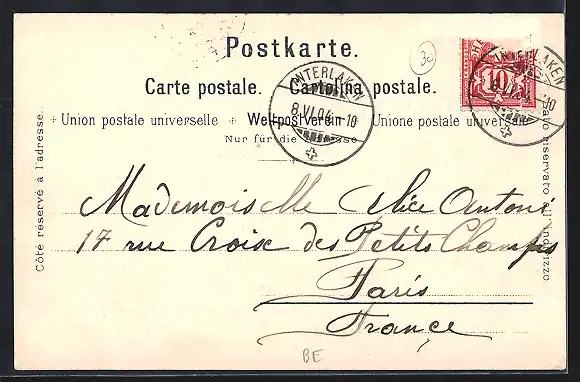 Postkarte.
Carte postale. Cartolina postale.
Union postale universelle Weltpostverein Unione postale universale
Nur für die Adresse
Côté réservé à l'adresse.
Lato riservato all'indirizzo
30
10
INTERLAKEN
8.VI.04.–10
INTERLAKEN
8.VI.04.–10
Mademoiselle Alice Antoni
17 rue Croix des Petits Champs
Paris
France
BE